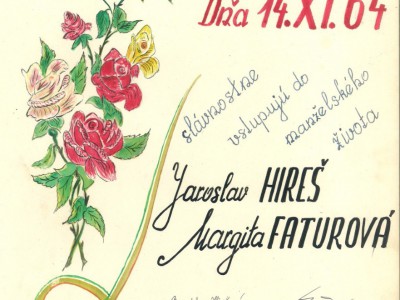 Dňa 14. XI. 64
slávnostne
vstupujú do
manželského
života
Jaroslav HIREŠ
Margita FATUROVÁ